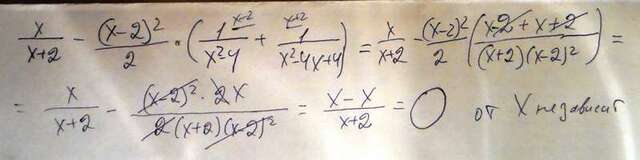 x/(x+2) - (x-2)²/2 · (1^{x-2}/(x²-4) + 1^{x+2}/(x²-4x+4)) = x/(x+2) - (x-2)²/2 ((x-2+x+2)/((x+2)(x-2)²)) =
= x/(x+2) - ((x-2)²·2x)/(2(x+2)(x-2)²) = (x-x)/(x+2) = 0 от x независит